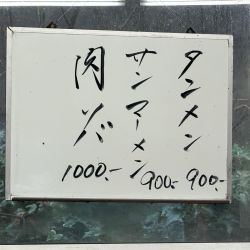 タンメン 900.-
サンマーメン 900.-
肉そバ 1000.-